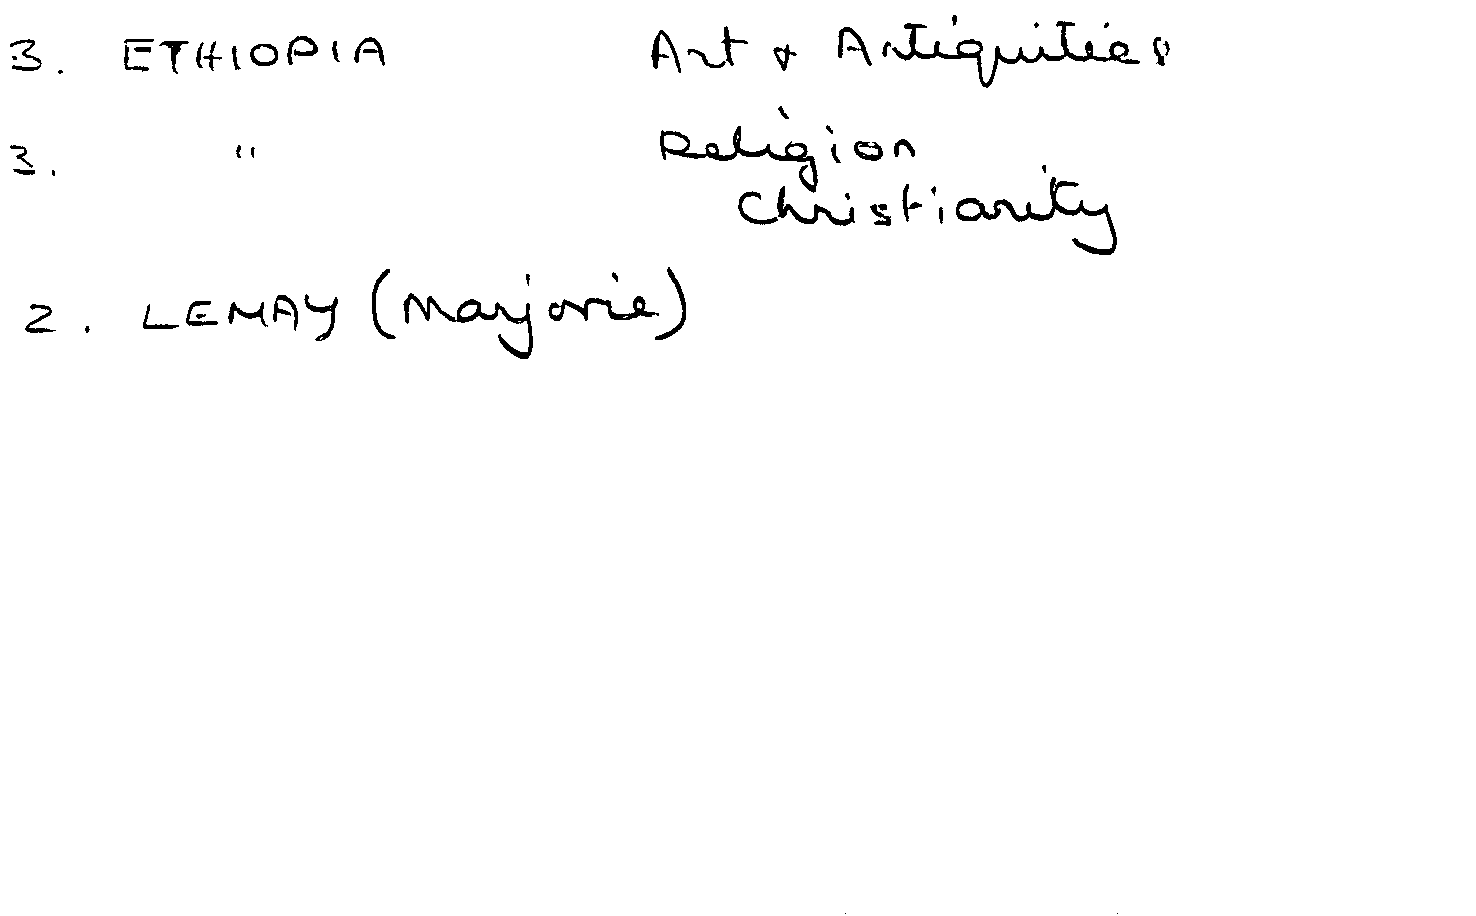 3. ETHIOPIA Art & Antiquities
3. " Religion
Christianity
2. LEMAY (Marjorie)